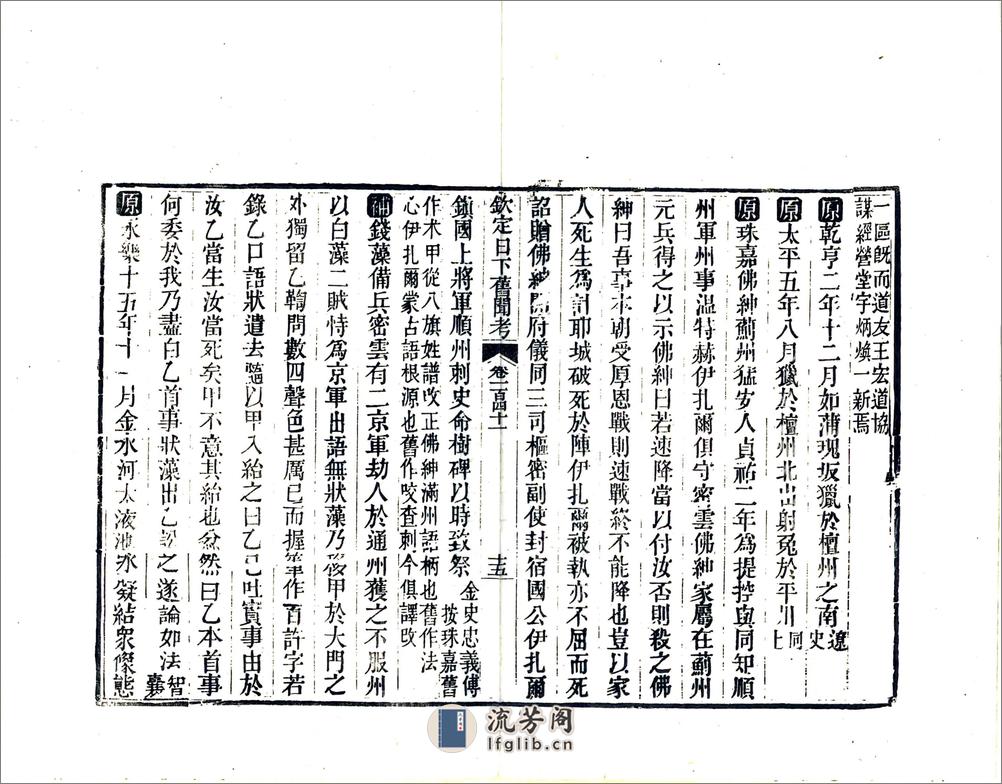 一區既而道友王宏道協
謀經營堂字炳煥一新焉
原乾亨二年十二月如蒲瑰坂獵於檀州之南遼史
原太平五年八月獵於檀州北山射兔於平川同上
原珠嘉佛紳薊州猛安人貞祐二年為提控與同知順
州軍州事温特赫伊扎爾俱守密雲佛紳家屬在薊州
元兵得之以示佛紳曰若速降當以付汝否則殺之佛
紳曰吾事本朝受厚恩戰則速戰終不能降也豈以家
人死生為計耶城破死於陣伊扎爾被執亦不屈而死
詔贈佛紳開府儀同三司樞密副使封宿國公伊扎爾
欽定日下舊聞考 卷一百四十一 十五
鎮國上將軍順州刺史命樹碑以時致祭金史忠義傳
按珠嘉舊
作术甲從八旗姓譜改正佛紳滿州語柄也舊作法
心伊扎爾蒙古語根源也舊作咬查剌今俱譯改
補錢藻備兵密雲有二京軍劫人於通州獲之不服州
以白藻二賊恃為京軍出語無狀藻乃移甲於大門之
外獨留乙鞫問數四聲色甚厲已而握筆作百許字若
錄乙口語狀遣去隨以甲入紿之曰乙已吐實事由於
汝乙當生汝當死矣甲不意其紿也忿然曰乙本首事
何委於我乃盡白乙首事狀藻出乙證之遂論如法智囊
原永樂十五年十一月金水河太液池氷凝結衆像態
流芳阁
lfglib.cn